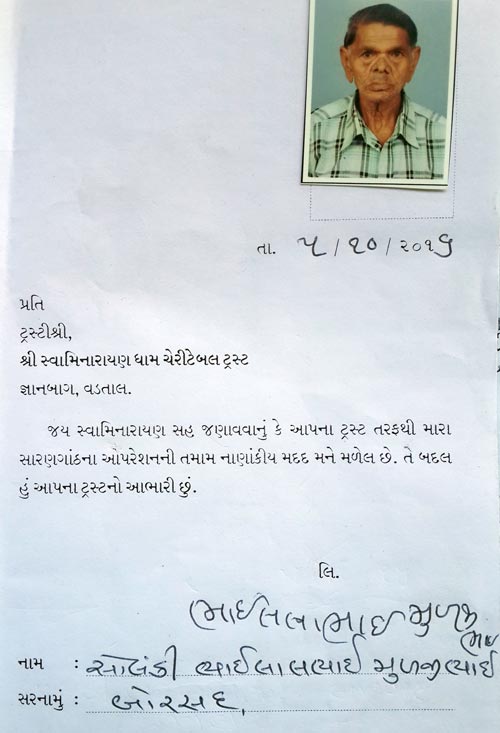 તા. ૫ / ૧૦ / ૨૦૧૬
પ્રતિ
ટ્રસ્ટીશ્રી,
શ્રી સ્વામિનારાયણ ધામ ચેરીટેબલ ટ્રસ્ટ
જ્ઞાનબાગ, વડતાલ.
જય સ્વામિનારાયણ સહ જણાવવાનું કે આપના ટ્રસ્ટ તરફથી મારા
સારણગાંઠના ઓપરેશનની તમામ નાણાંકીય મદદ મને મળેલ છે. તે બદલ
હું આપના ટ્રસ્ટનો આભારી છું.
લિ.
ભાઈલાલભાઈ મુળજી
ભાઈ
નામ : સોલંકી ભાઈલાલભાઈ મુળજીભાઈ
સરનામું : બોરસદ,